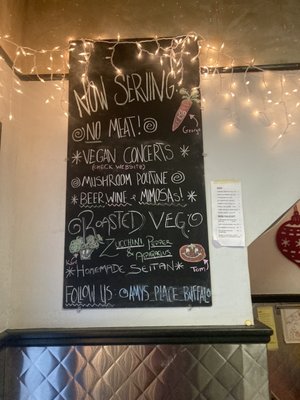 NOW SERVING
NO MEAT!
George
*VEGAN CONCERTS*
(CHECK WEBSITE)
MUSHROOM POUTINE
*BEER WINE + MIMOSAS!*
ROASTED VEG
ZUCCHINI PEPPER
& ASPARAGUS
HOMEMADE SEITAN*
Tom
FOLLOW US: @AMYS_PLACE_BUFFALO